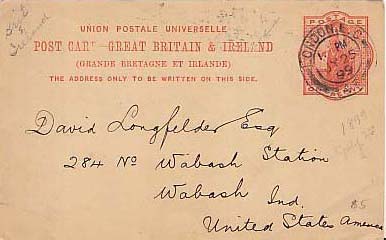 UNION POSTALE UNIVERSELLE
POST CARD—GREAT BRITAIN & IRELAND
(GRANDE BRETAGNE ET IRLANDE)
THE ADDRESS ONLY TO BE WRITTEN ON THIS SIDE.
POSTAGE
LONDON E.C
PM
25
99
David Longfelder Esq
284 No Wabash Station
Wabash Ind.
United States America
1899
85